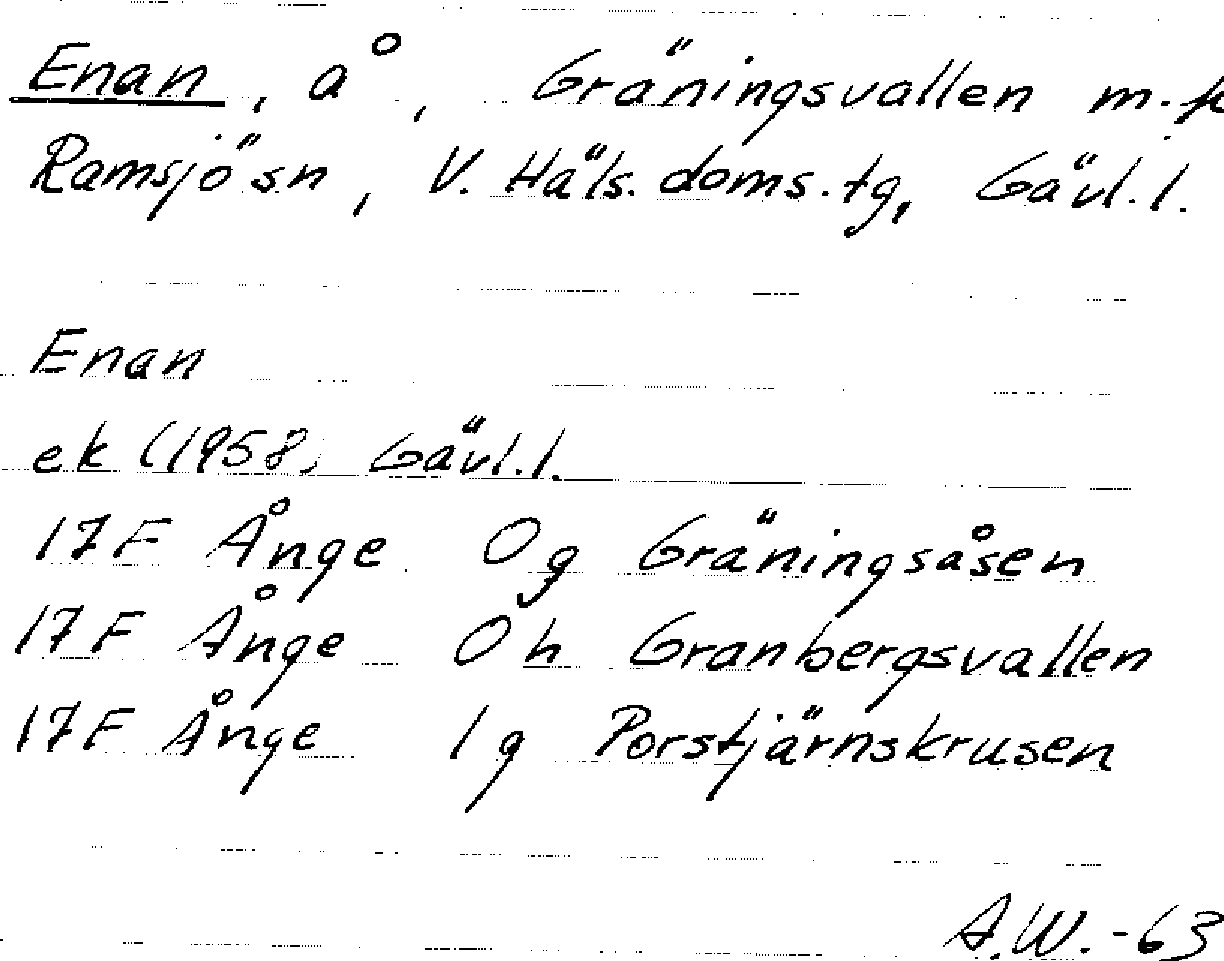 Enan, å, Gräningsvallen
Ramsjö sn, V. Häls. doms. tg, Gävl. l.
Enan
ek (1958) Gävl. l.
17F Ånge 0g Gräningsåsen
17F Ånge 0h Granbergsvallen
17F Ånge 1g Porstjärnskrusen
A.W.-63